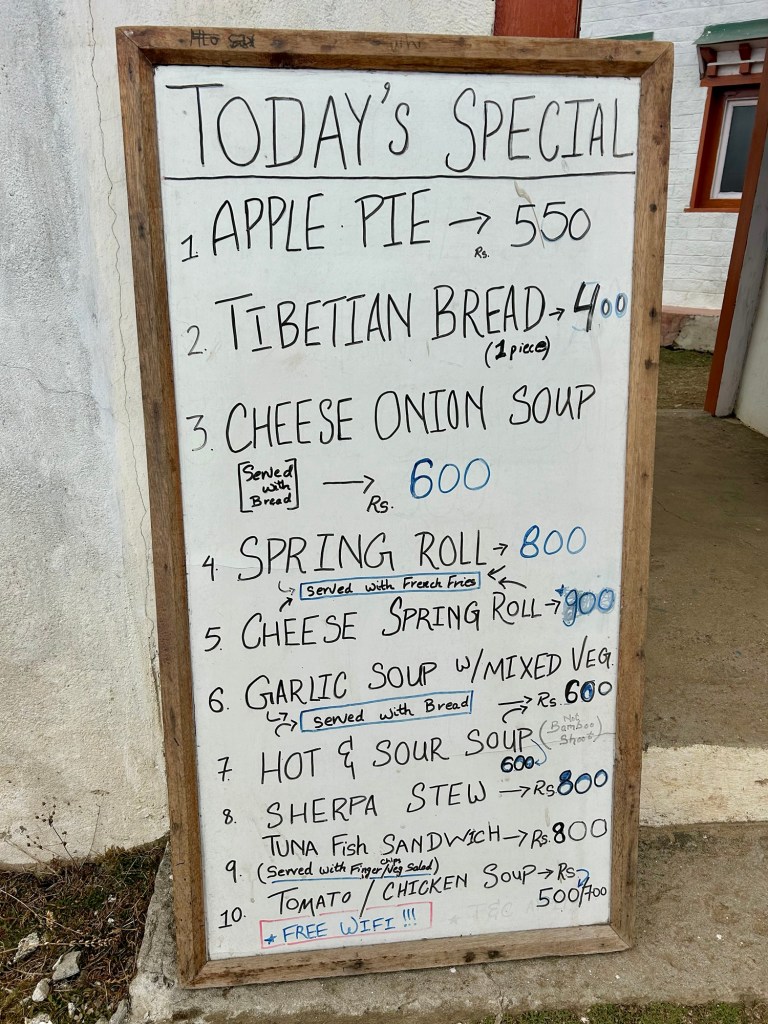 TODAY'S SPECIAL
1 APPLE PIE → Rs. 550
2. TIBETIAN BREAD → 400
(1 piece)
3. CHEESE ONION SOUP
[Served with Bread] → Rs. 600
4. SPRING ROLL → 800
Served with French Fries
5. CHEESE SPRING ROLL → 900
6. GARLIC SOUP W/MIXED VEG.
Served with Bread → Rs. 600
7. HOT & SOUR SOUP (Not Bamboo Shoot)
600
8. SHERPA STEW → Rs 800
9. TUNA Fish SANDWICH → Rs. 800
(Served with Finger chips/Veg Salad)
10. TOMATO / CHICKEN SOUP → Rs
500/700
* FREE WIFI !!!